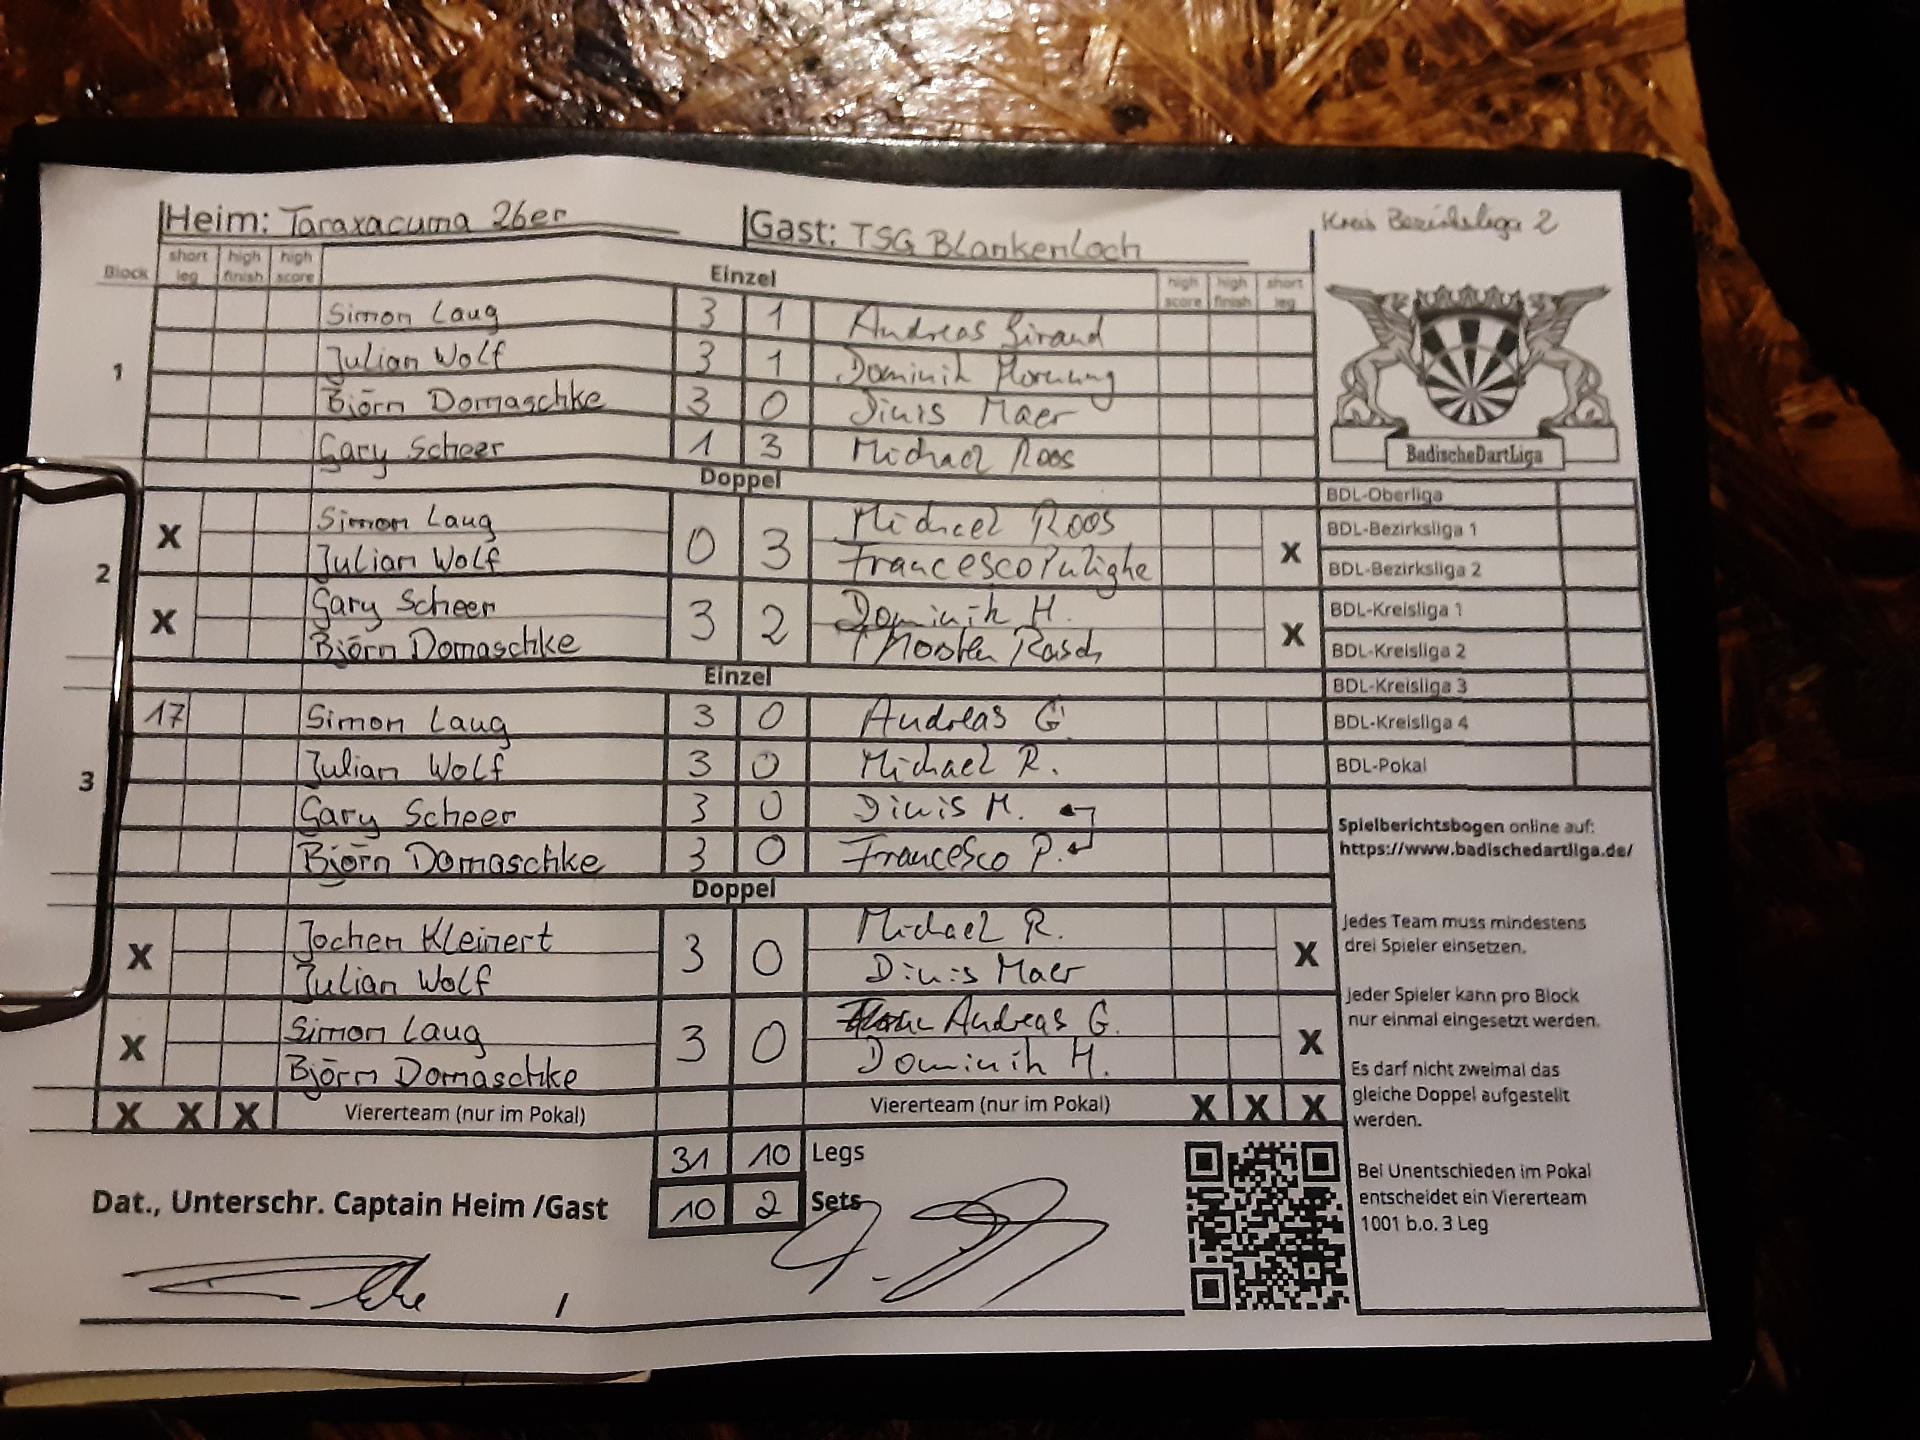 Heim: Taraxacuma 26er Gast: TSG Blankenloch Kreis Bezirksliga 2
Block short leg high finish high score Einzel high score high finish short leg
1
Simon Laug 3 1 Andreas Girand
Julian Wolf 3 1 Dominik Hornung
Björn Domaschke 3 0 Dinis Maer
Gary Scheer 1 3 Michael Roos
BadischeDartLiga
Doppel
2
X Simon Laug 0 3 Michael Roos X
Julian Wolf Francesco Pulighe
X Gary Scheer 3 2 Dominik H. X
Björn Domaschke Thorsten Rasch
Einzel
3
17 Simon Laug 3 0 Andreas G.
Julian Wolf 3 0 Michael R.
Gary Scheer 3 0 Dinis M.
Björn Domaschke 3 0 Francesco P.
Doppel
X Jochen Kleinert 3 0 Michael R. X
Julian Wolf Dinis Maer
X Simon Laug 3 0 Andreas G. X
Björn Domaschke Dominik H.
X X X Viererteam (nur im Pokal) Viererteam (nur im Pokal) X X X
31 10 Legs
10 2 Sets
Dat., Unterschr. Captain Heim /Gast
/
BDL-Oberliga
BDL-Bezirksliga 1
BDL-Bezirksliga 2
BDL-Kreisliga 1
BDL-Kreisliga 2
BDL-Kreisliga 3
BDL-Kreisliga 4
BDL-Pokal
Spielberichtsbogen online auf:
https://www.badischedartliga.de/
Jedes Team muss mindestens
drei Spieler einsetzen.
Jeder Spieler kann pro Block
nur einmal eingesetzt werden.
Es darf nicht zweimal das
gleiche Doppel aufgestellt
werden.
Bei Unentschieden im Pokal
entscheidet ein Viererteam
1001 b.o. 3 Leg